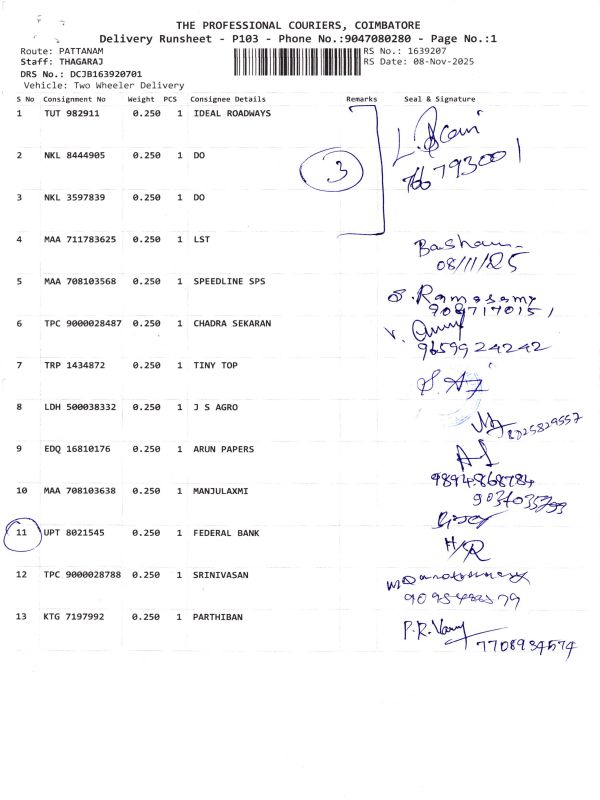 THE PROFESSIONAL COURIERS, COIMBATORE
Delivery Runsheet - P103 - Phone No.:9047080280 - Page No.:1
Route: PATTANAM RS No.: 1639207
Staff: THAGARAJ RS Date: 08-Nov-2025
DRS No.: DCJB163920701
Vehicle: Two Wheeler Delivery
S No Consignment No Weight PCS Consignee Details Remarks Seal & Signature
1 TUT 982911 0.250 1 IDEAL ROADWAYS
2 NKL 8444905 0.250 1 DO 3
3 NKL 3597839 0.250 1 DO
4 MAA 711783625 0.250 1 LST
08/11/25
5 MAA 708103568 0.250 1 SPEEDLINE SPS Ramasamy
6 TPC 9000028487 0.250 1 CHADRA SEKARAN
9659924242
7 TRP 1434872 0.250 1 TINY TOP
8 LDH 500038332 0.250 1 J S AGRO
8025829557
9 EDQ 16810176 0.250 1 ARUN PAPERS
9894868784
10 MAA 708103638 0.250 1 MANJULAXMI
11 UPT 8021545 0.250 1 FEDERAL BANK
12 TPC 9000028788 0.250 1 SRINIVASAN
13 KTG 7197992 0.250 1 PARTHIBAN P.R.
7708934574